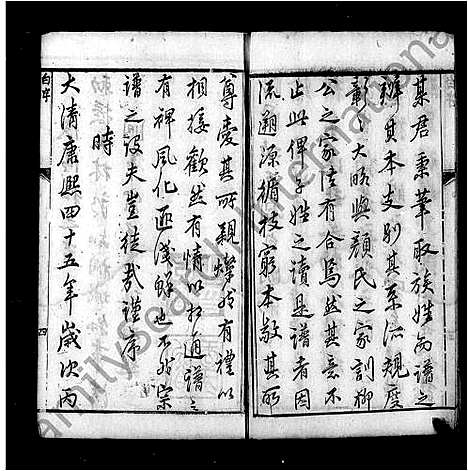 某君秉筆取族姓為譜之
辨其本支別其系派規度
彰彰大略與顏氏之家訓柳
公之家法有合焉然其意不
止此俾子姓之讀是譜者因
流溯源循枝窮本敬其所
尊愛其所親燦然有禮以
相接歡然有情以相通譜之
有裨風化匪淺鮮也不然宗
譜之設夫豈徒哉謹序
時
大清康熙四十五年歲次丙
自序
四
familysearch international